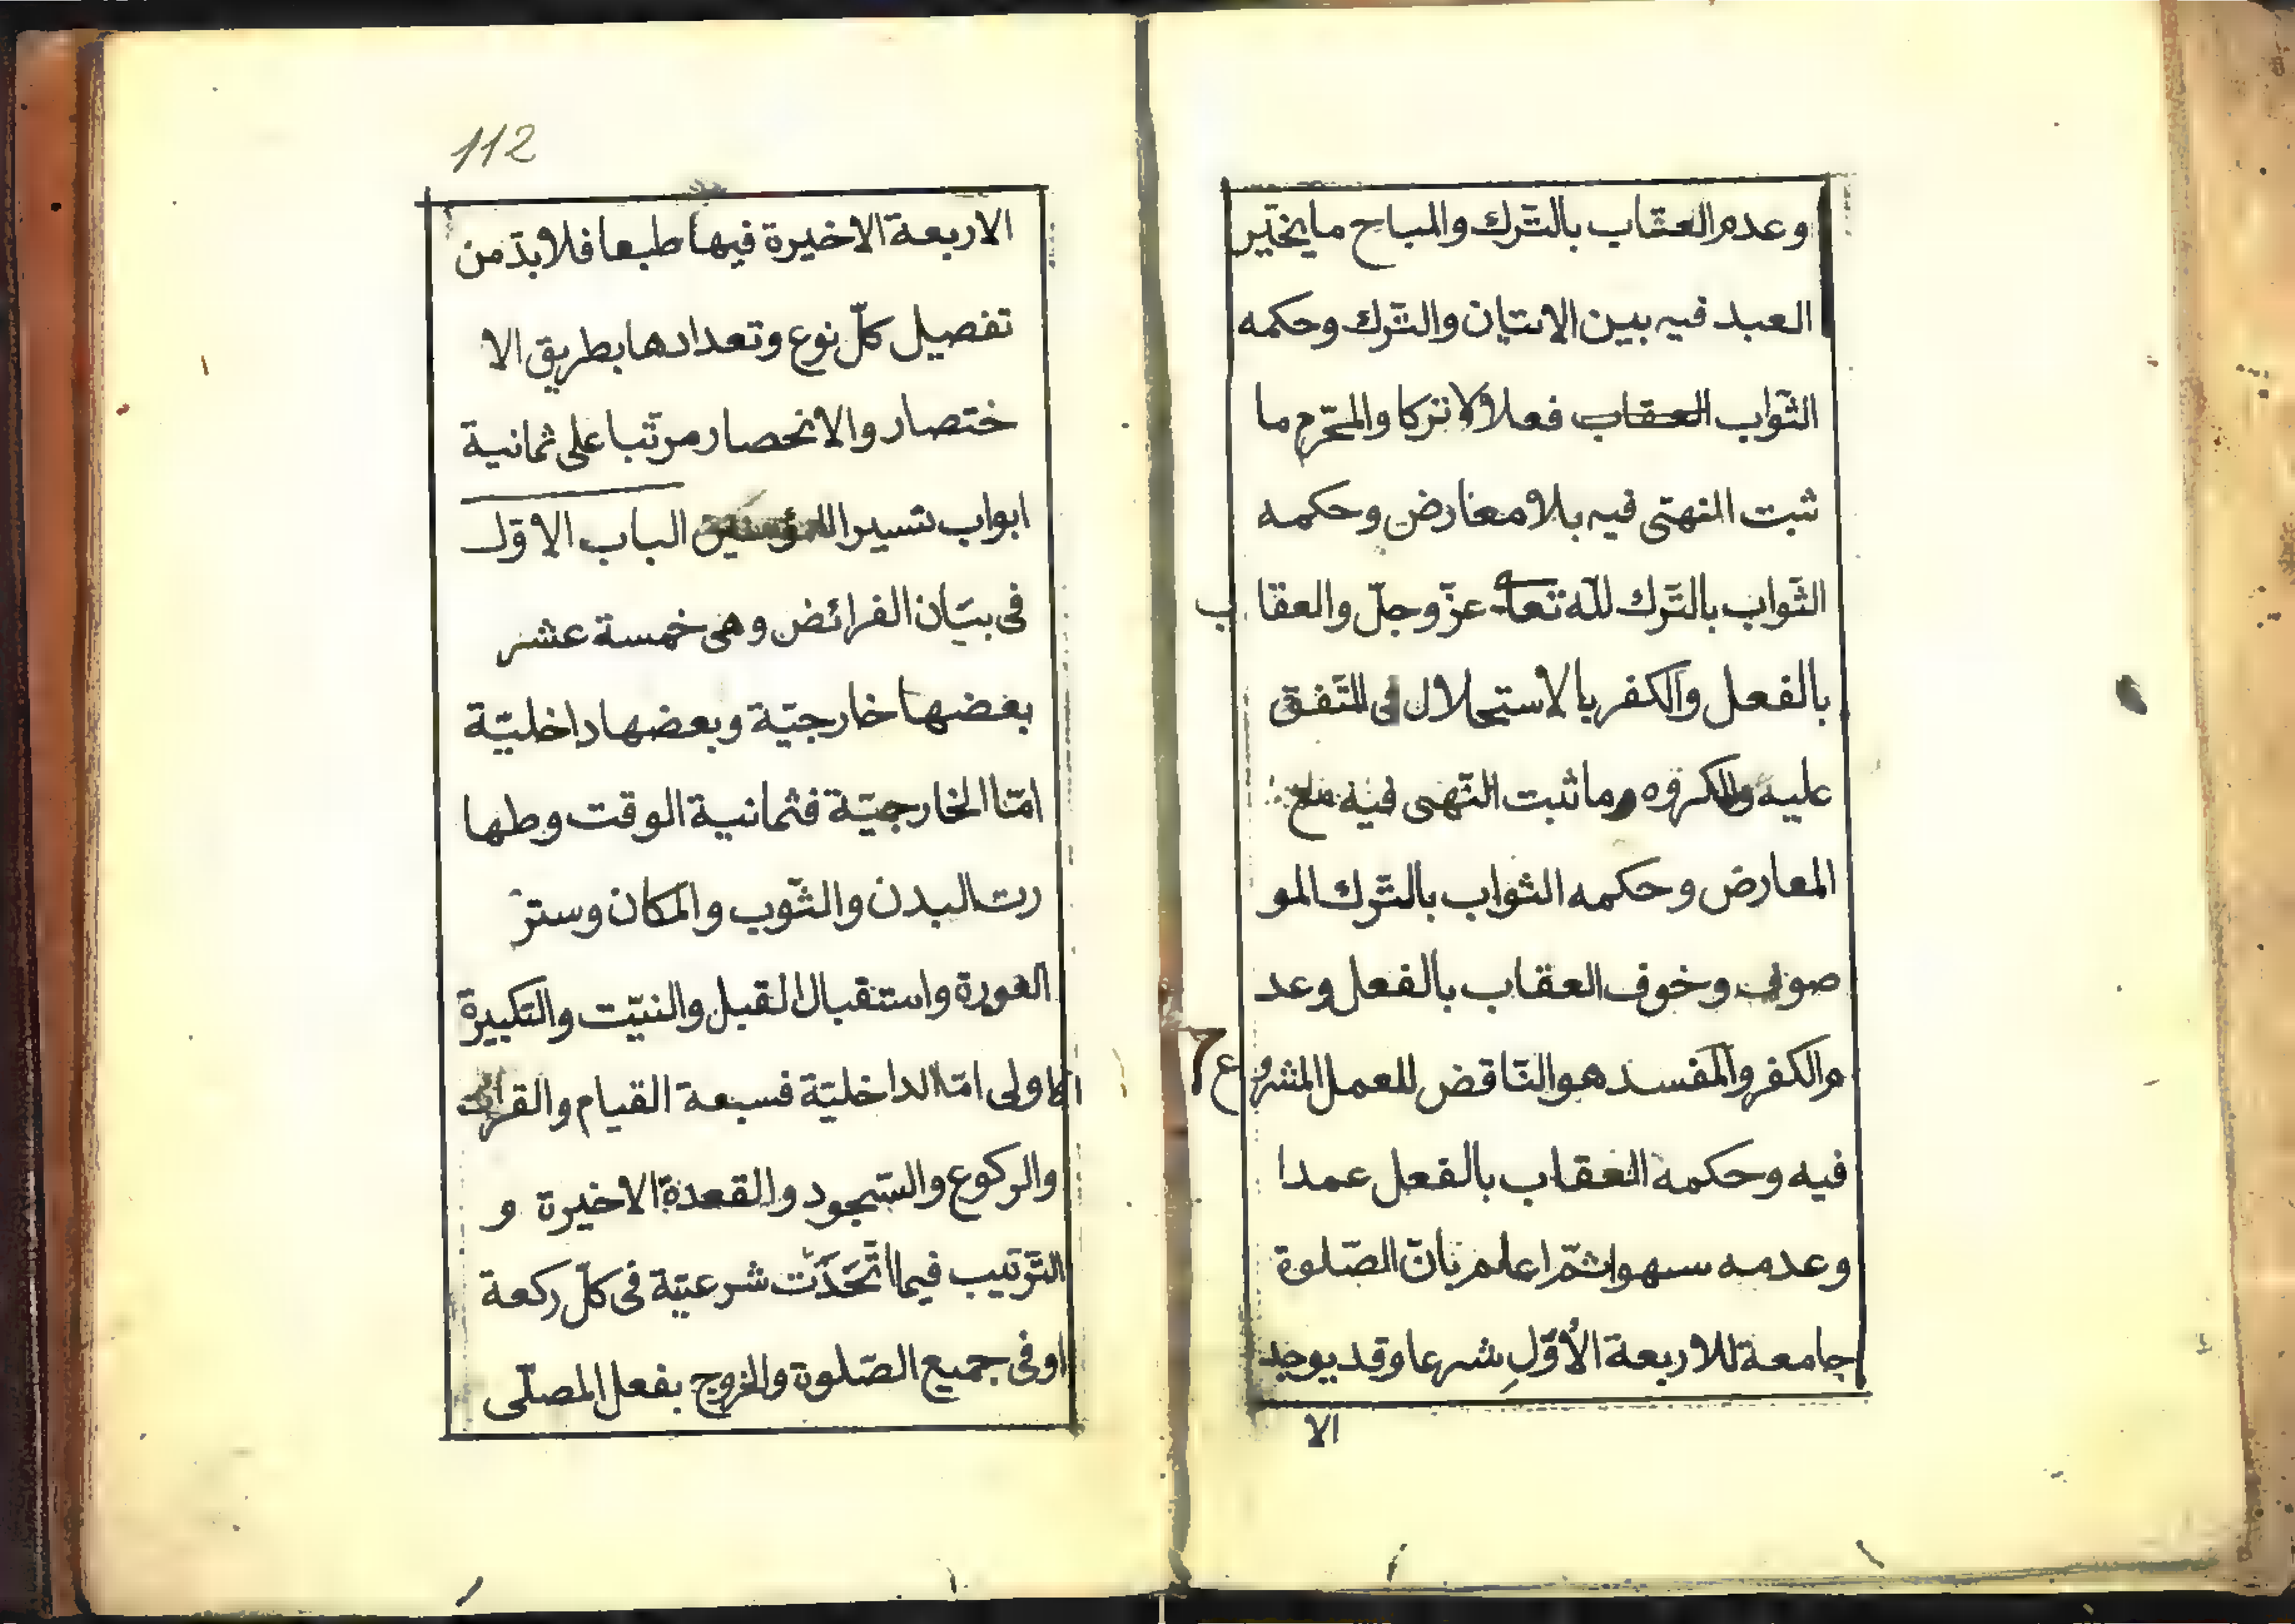 وعدم العقاب بالتّرك والمباح ما يخيّر
العبد فيه بين الاتيان والتّرك وحكمه
الثّواب العقاب فعلا ولا تركا والمحرّم ما
ثبت النهى فيه بلا معارض وحكمه
الثّواب بالتّرك للّه تعا عزّ وجلّ والعقا ب
بالفعل والكفر بالاستحلال فى المتّفق
عليه والمكروه وما ثبت النّهى فيه مع
المعارض وحكمه الثواب بالتّرك المو
صوف وخوف العقاب بالفعل وعد
م الكفر والمفسد هو النّاقض للعمل المشروع
فيه وحكمه العقاب بالفعل عمدا
وعدمه سهوا ثمّ اعلم بانّ الصّلوة
جامعة للاربعة الأوّلِ شرعا وقد يوجد
الا
112
الاربعة الاخيرة فيها طبعا فلا بدّ من
تفصيل كلّ نوع وتعدادها بطريق الا
ختصار والانحصار مرتّبا على ثمانية
ابواب تيسيرا الباب الاوّل
فى بيان الفرائض وهى خمسة عشر
بعضها خارجيّة وبعضها داخليّة
امّا الخارجيّة فثمانية الوقت وطها
رت البدن والثّوب والمكان وستر
العورة واستقبال القبل والنيّت والتكبيرة
الاولى امّا الداخليّة فسبعة القيام والقرائت
والركوع والسّجود والقعدة الاخيرة و
التّرتيب فيما اتّحدّت شرعيّة فى كلّ ركعة
اوفى جميع الصّلوة والخروج بفعل المصلّى